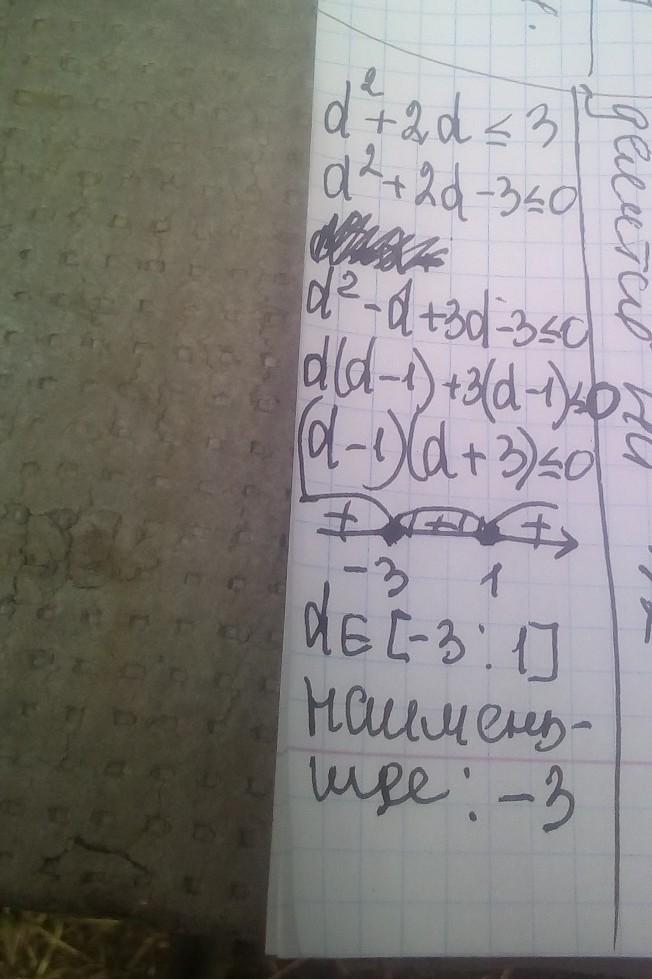 d² + 2d ≤ 3
d² + 2d - 3 ≤ 0
d² - d + 3d - 3 ≤ 0
d(d - 1) + 3(d - 1) ≤ 0
(d - 1)(d + 3) ≤ 0
+ +
-3 1
d ∈ [-3 : 1]
наимень-
шее : -3